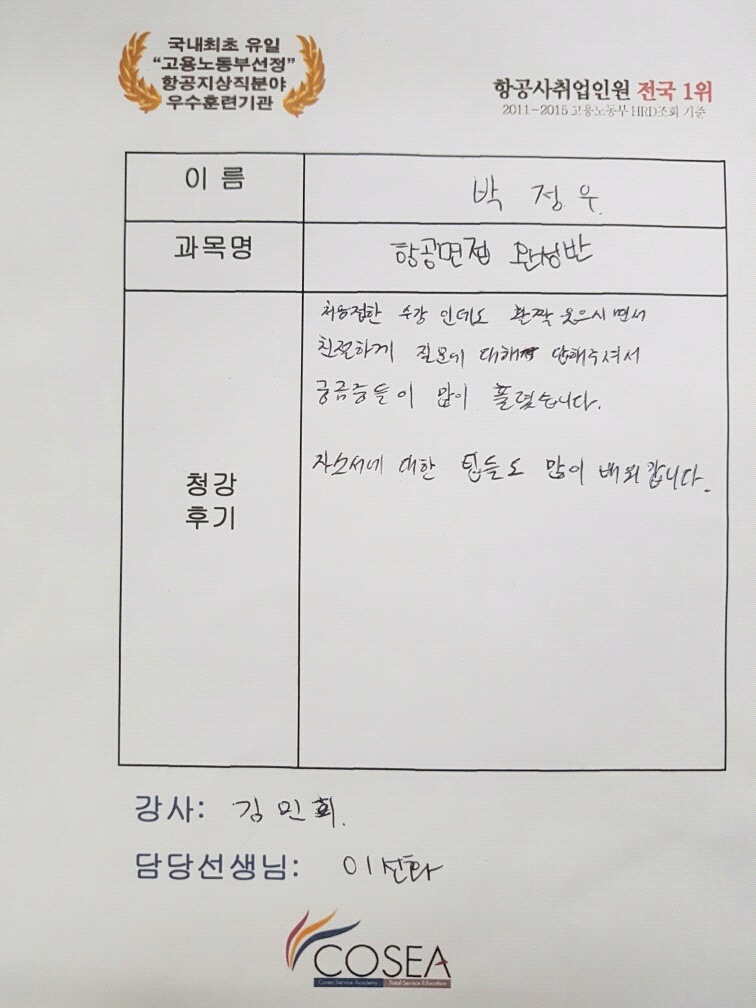 국내최초 유일
"고용노동부선정"
항공지상직분야
우수훈련기관
항공사취업인원 전국 1위
2011-2015 고용노동부 HRD조회 기준
이 름
박 정 우.
과목명
항공면접 완성반
청강
후기
처음접한 수강 인데도 환짝 웃으시면서
친절하게 질문에 대해 답해주셔서
궁금증들이 많이 풀렸습니다.
자소서에 대한 팁들도 많이 배워갑니다.
강사: 김민희.
담당선생님: 이선화
COSEA
Corea Service Academy Total Service Education